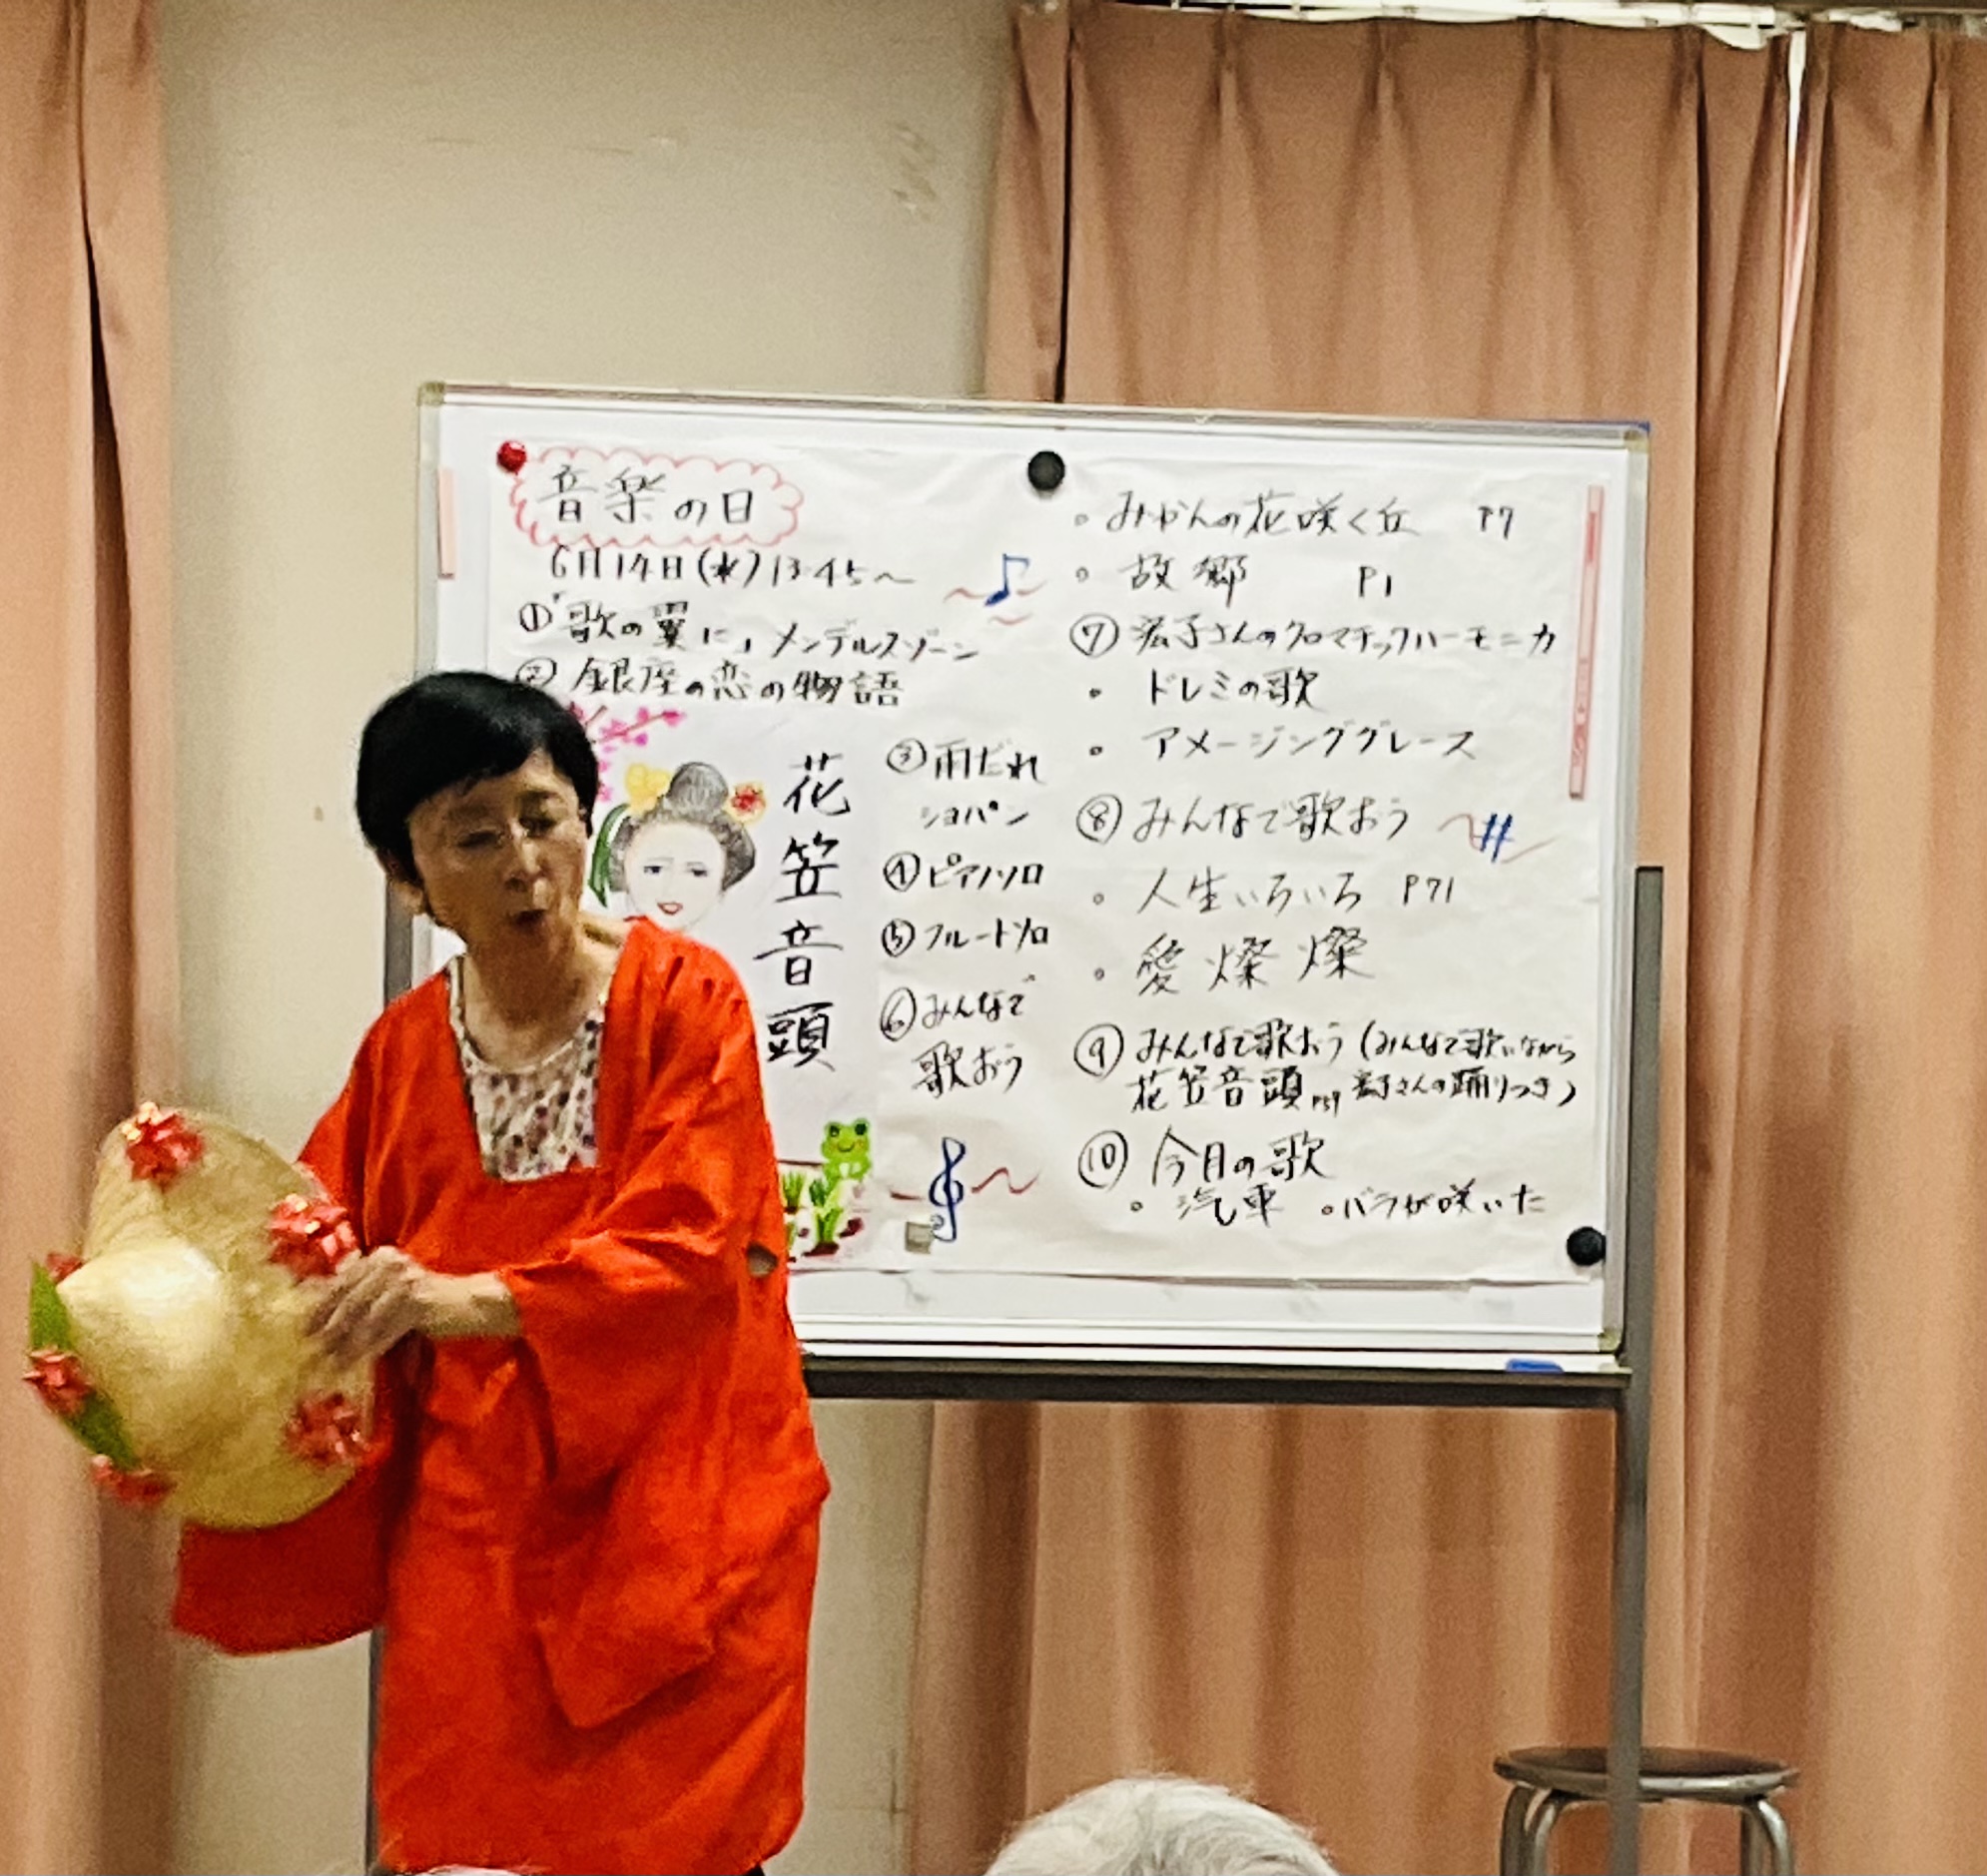 音楽の日
6月14日(水)13:45〜
①「歌の翼に」メンデルスゾーン
② 銀座の恋の物語
花笠音頭
③雨だれ
ショパン
④ピアノソロ
⑤フルートソロ
⑥みんなで
歌おう
。みかんの花咲く丘 P7
。故郷 P1
⑦ 宏子さんのクロマチックハーモニカ
・ドレミの歌
・アメージンググレース
⑧みんなで歌おう
。人生いろいろ P71
。愛燦燦
⑨みんなで歌おう(みんなで歌いながら
花笠音頭 P59 宏子さんの踊りつき)
⑩ 今月の歌
。汽車 。バラが咲いた